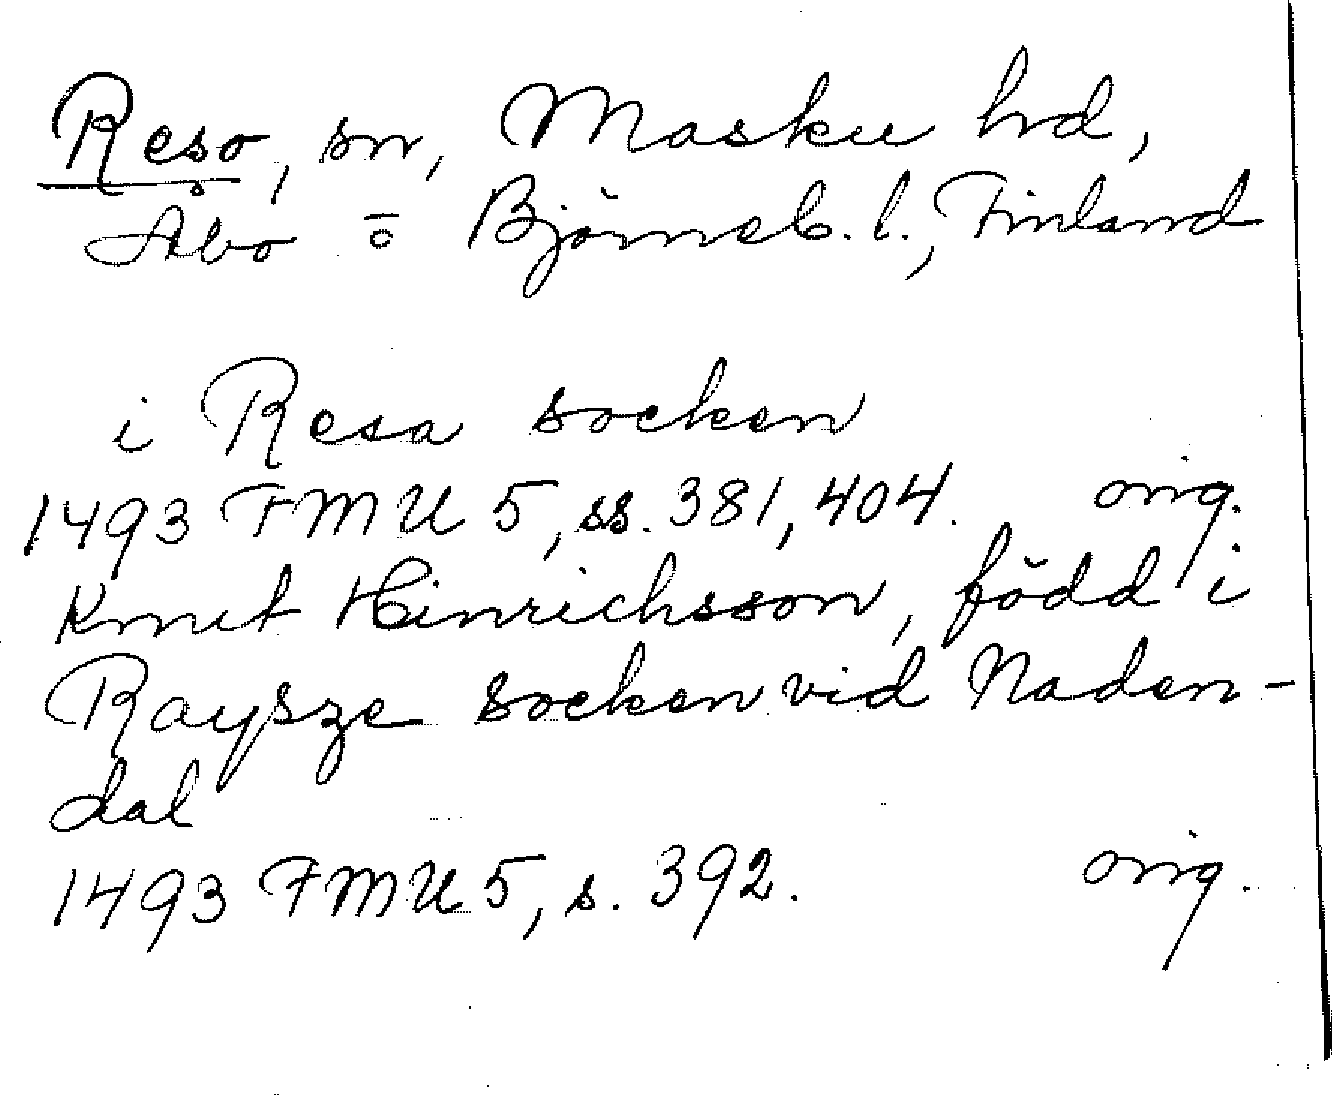 Reso, sn, Masku hrd,
Åbo o Björneb. l., Finland
i Resa socken
1493 FMU 5, ss. 381, 404. orig.
Knut Hinrichsson, född i
Raysze socken vid Naden-
dal
1493 FMU 5, s. 392. orig.